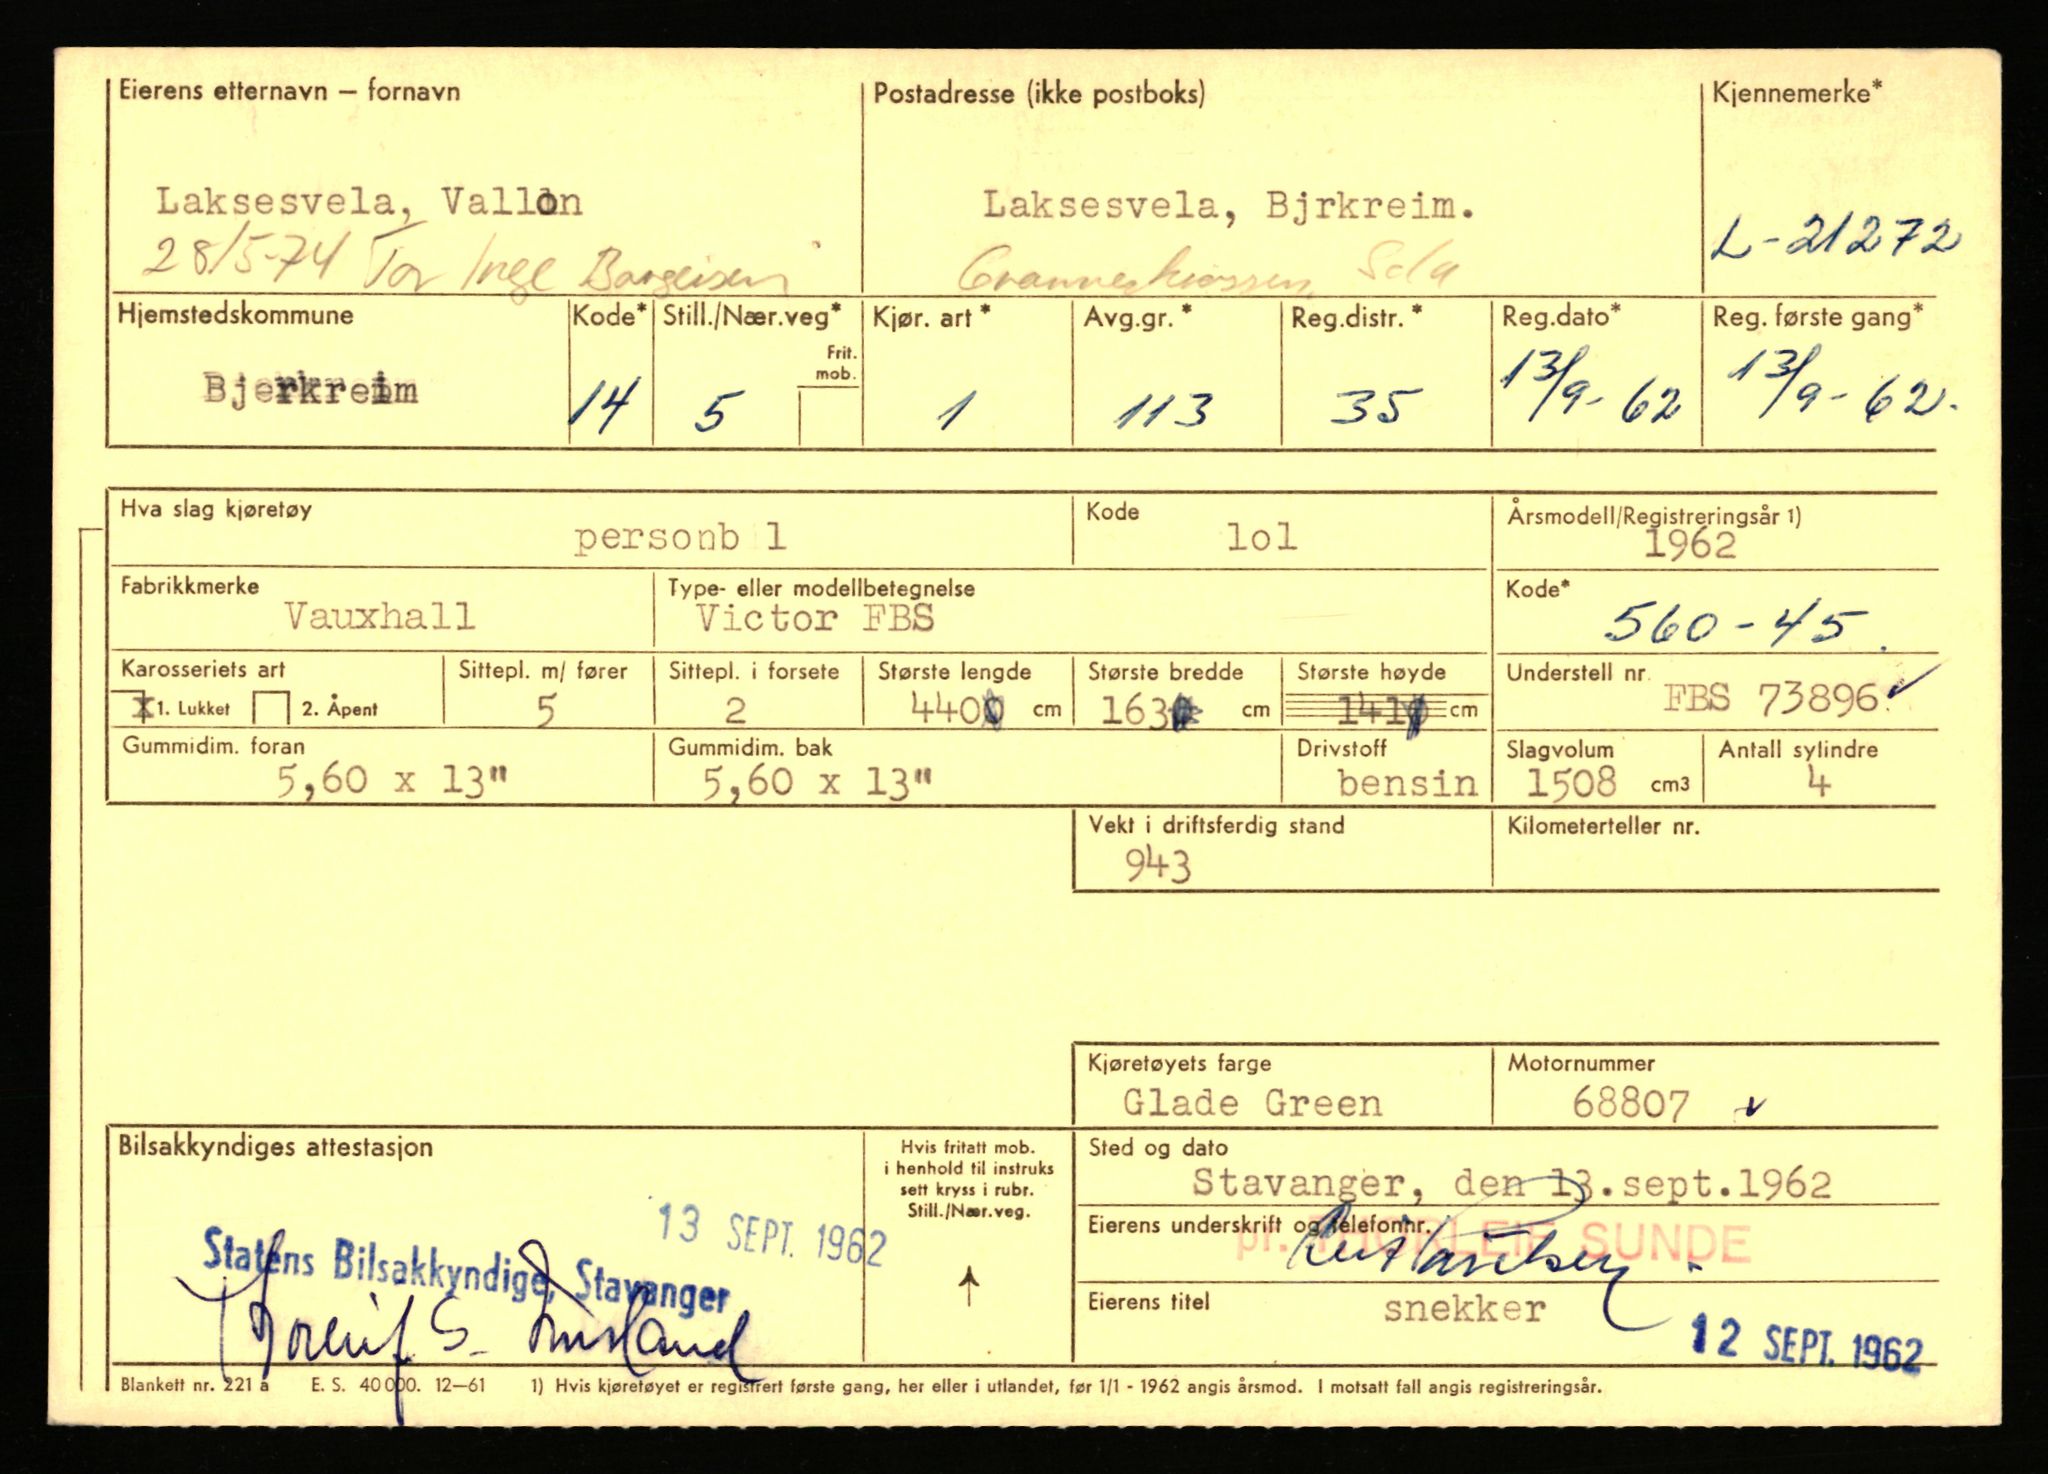 Eierens etternavn — fornavn
Postadresse (ikke postboks)
Kjennemerke*
Laksesvela, Vallon
Laksesvela, Bjrkreim.
L-21272
28/5-74 Tor Inge
Sola
Hjemstedskommune
Kode*
Still./Nær.veg*
Frit. mob.
Kjør. art *
Avg.gr. *
Reg.distr. *
Reg.dato*
Reg. første gang*
Bjerkreim
14
5
1
113
35
13/9-62
13/9-62.
Hva slag kjøretøy
personb l
Kode
lol
Årsmodell/Registreringsår 1)
1962
Fabrikkmerke
Vauxhall
Type- eller modellbetegnelse
Victor FBS
Kode*
560-45.
Karosseriets art
x 1. Lukket
2. Åpent
Sittepl. m/ fører
5
Sittepl. i forsete
2
Største lengde
440 cm
Største bredde
163 cm
Største høyde
141 cm
Understell nr.
FBS 73896
Gummidim. foran
5,60 x 13"
Gummidim. bak
5,60 x 13"
Drivstoff
bensin
Slagvolum
1508 cm3
Antall sylindre
4
Vekt i driftsferdig stand
943
Kilometerteller nr.
Kjøretøyets farge
Glade Green
Motornummer
68807
Bilsakkyndiges attestasjon
Hvis fritatt mob.
i henhold til instruks
sett kryss i rubr.
Still./Nær.veg.
Sted og dato
Stavanger, den 13.sept.1962
13 SEPT. 1962
Statens Bilsakkyndige, Stavanger
Eierens underskrift og telefonnr.
pr. THORLEIF SUNDE
Eierens titel
snekker
12 SEPT. 1962
Blankett nr. 221 a E. S. 40 000. 12—61 1) Hvis kjøretøyet er registrert første gang, her eller i utlandet, før 1/1 - 1962 angis årsmod. I motsatt fall angis registreringsår.